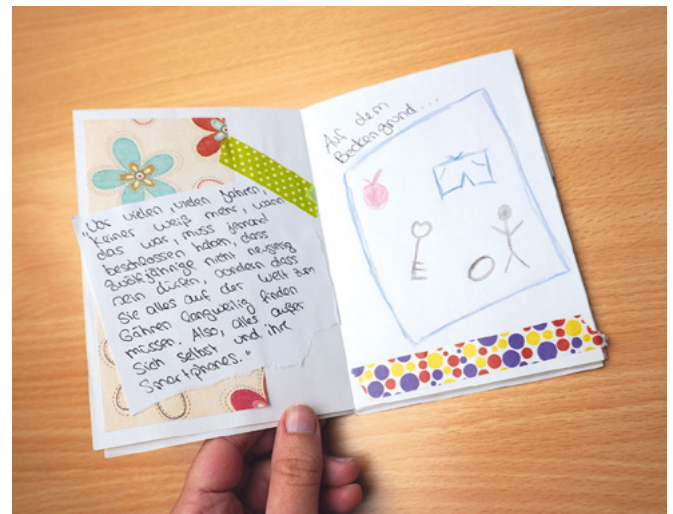 "Vor vielen, vielen Jahren,
keiner weiß mehr, wann
das war, muss jemand
beschlossen haben, dass
zwölfjährige nicht neugierig
sein dürfen, sondern dass
sie alles auf der Welt zum
Gähnen langweilig finden
müssen. Also, alles außer
sich selbst und ihre
Smartphones."
Auf dem
Beckengrund...